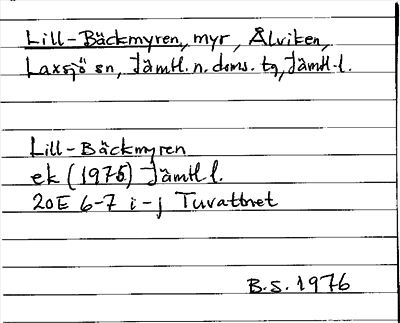 Lill-Bäckmyren, myr, Ålviken,
Laxsjö sn, Jämtl. n. doms. tg, Jämtl. l.
Lill-Bäckmyren
ek (1975) Jämtl l.
20E 6-7 i-j Tuvattnet
B.S. 1976